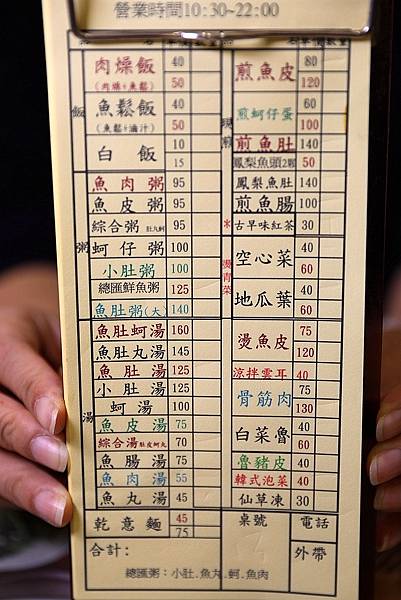 營業時間10:30~22:00
飯
肉燥飯 40
(肉燥+魚鬆) 50
魚鬆飯 40
(魚鬆+滷汁) 50
白飯 10
15
粥
魚肉粥 95
魚皮粥 95
綜合粥 肚丸蚵 95
蚵仔粥 100
小肚粥 100
總匯鮮魚粥 125
魚肚粥(大) 140
湯
魚肚蚵湯 160
魚肚丸湯 145
魚肚湯 125
小肚湯 125
蚵湯 100
魚皮湯 75
綜合湯 肚皮蚵丸 70
魚腸湯 75
魚肉湯 55
魚丸湯 45
乾意麵 45
75
合計:
現煎
煎魚皮 80
120
煎蚵仔蛋 60
100
煎魚肚 140
鳳梨魚頭2顆 50
鳳梨魚肚 140
煎魚腸 100
*古早味紅茶 30
燙青菜
空心菜 40
60
地瓜葉 40
60
燙魚皮 75
120
涼拌雲耳 40
骨筋肉 75
130
白菜魯 40
60
魯豬皮 40
韓式泡菜 40
仙草凍 30
桌號
電話
外帶
總匯粥:小肚.魚丸.蚵.魚肉